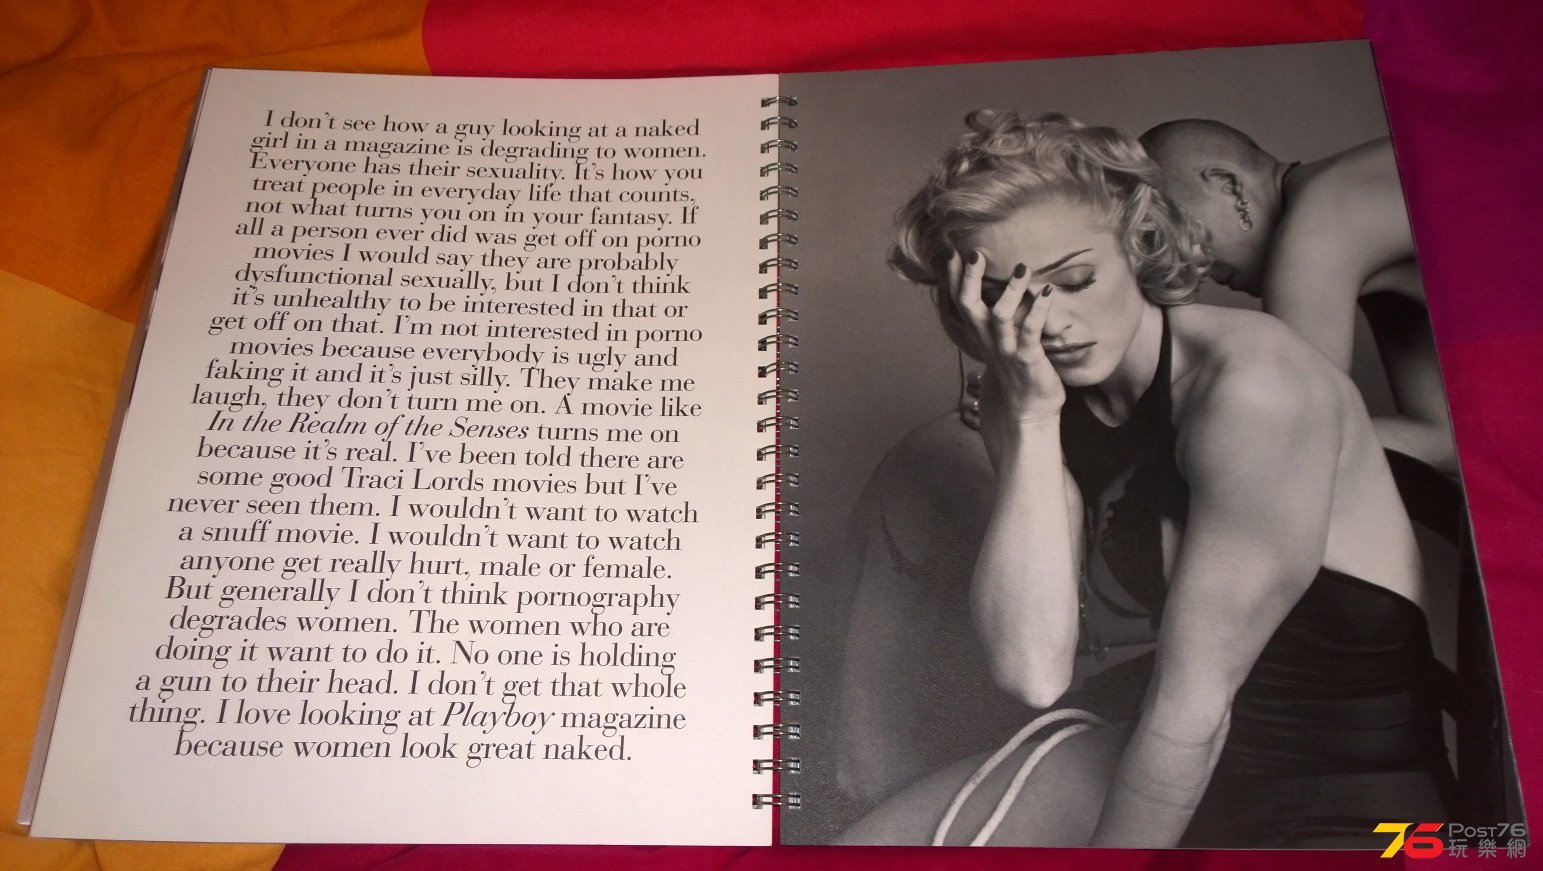 I don't see how a guy looking at a naked
girl in a magazine is degrading to women.
Everyone has their sexuality. It's how you
treat people in everyday life that counts,
not what turns you on in your fantasy. If
all a person ever did was get off on porno
movies I would say they are probably
dysfunctional sexually, but I don't think
it's unhealthy to be interested in that or
get off on that. I'm not interested in porno
movies because everybody is ugly and
faking it and it's just silly. They make me
laugh, they don't turn me on. A movie like
In the Realm of the Senses turns me on
because it's real. I've been told there are
some good Traci Lords movies but I've
never seen them. I wouldn't want to watch
a snuff movie. I wouldn't want to watch
anyone get really hurt, male or female.
But generally I don't think pornography
degrades women. The women who are
doing it want to do it. No one is holding
a gun to their head. I don't get that whole
thing. I love looking at Playboy magazine
because women look great naked.
76 Post76
玩樂網